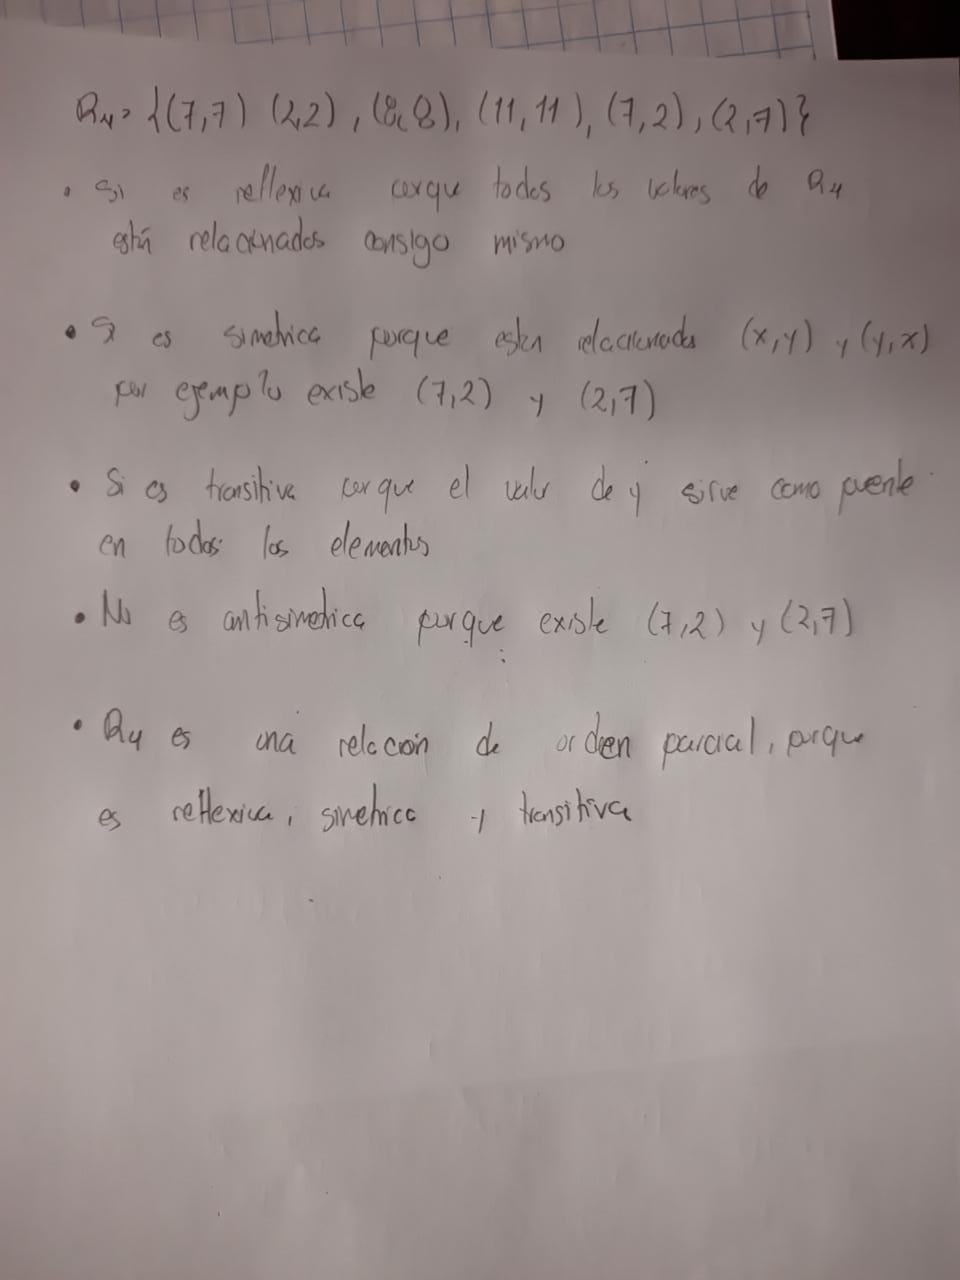 R4= {(7,7) (2,2), (8,8), (11,11), (7,2), (2,7)}
• Si es reflexiva porque todos los valores de R4
está relacionados consigo mismo
• Si es simetrica porque estan relacionados (x,y) y (y,x)
por ejemplo existe (7,2) y (2,7)
• Si es transitiva porque el valor de y sirve como puente
en todos los elementos
• No es antisimetrica porque existe (7,2) y (2,7)
• R4 es una relación de orden parcial, porque
es reflexica, simetrica y transitiva